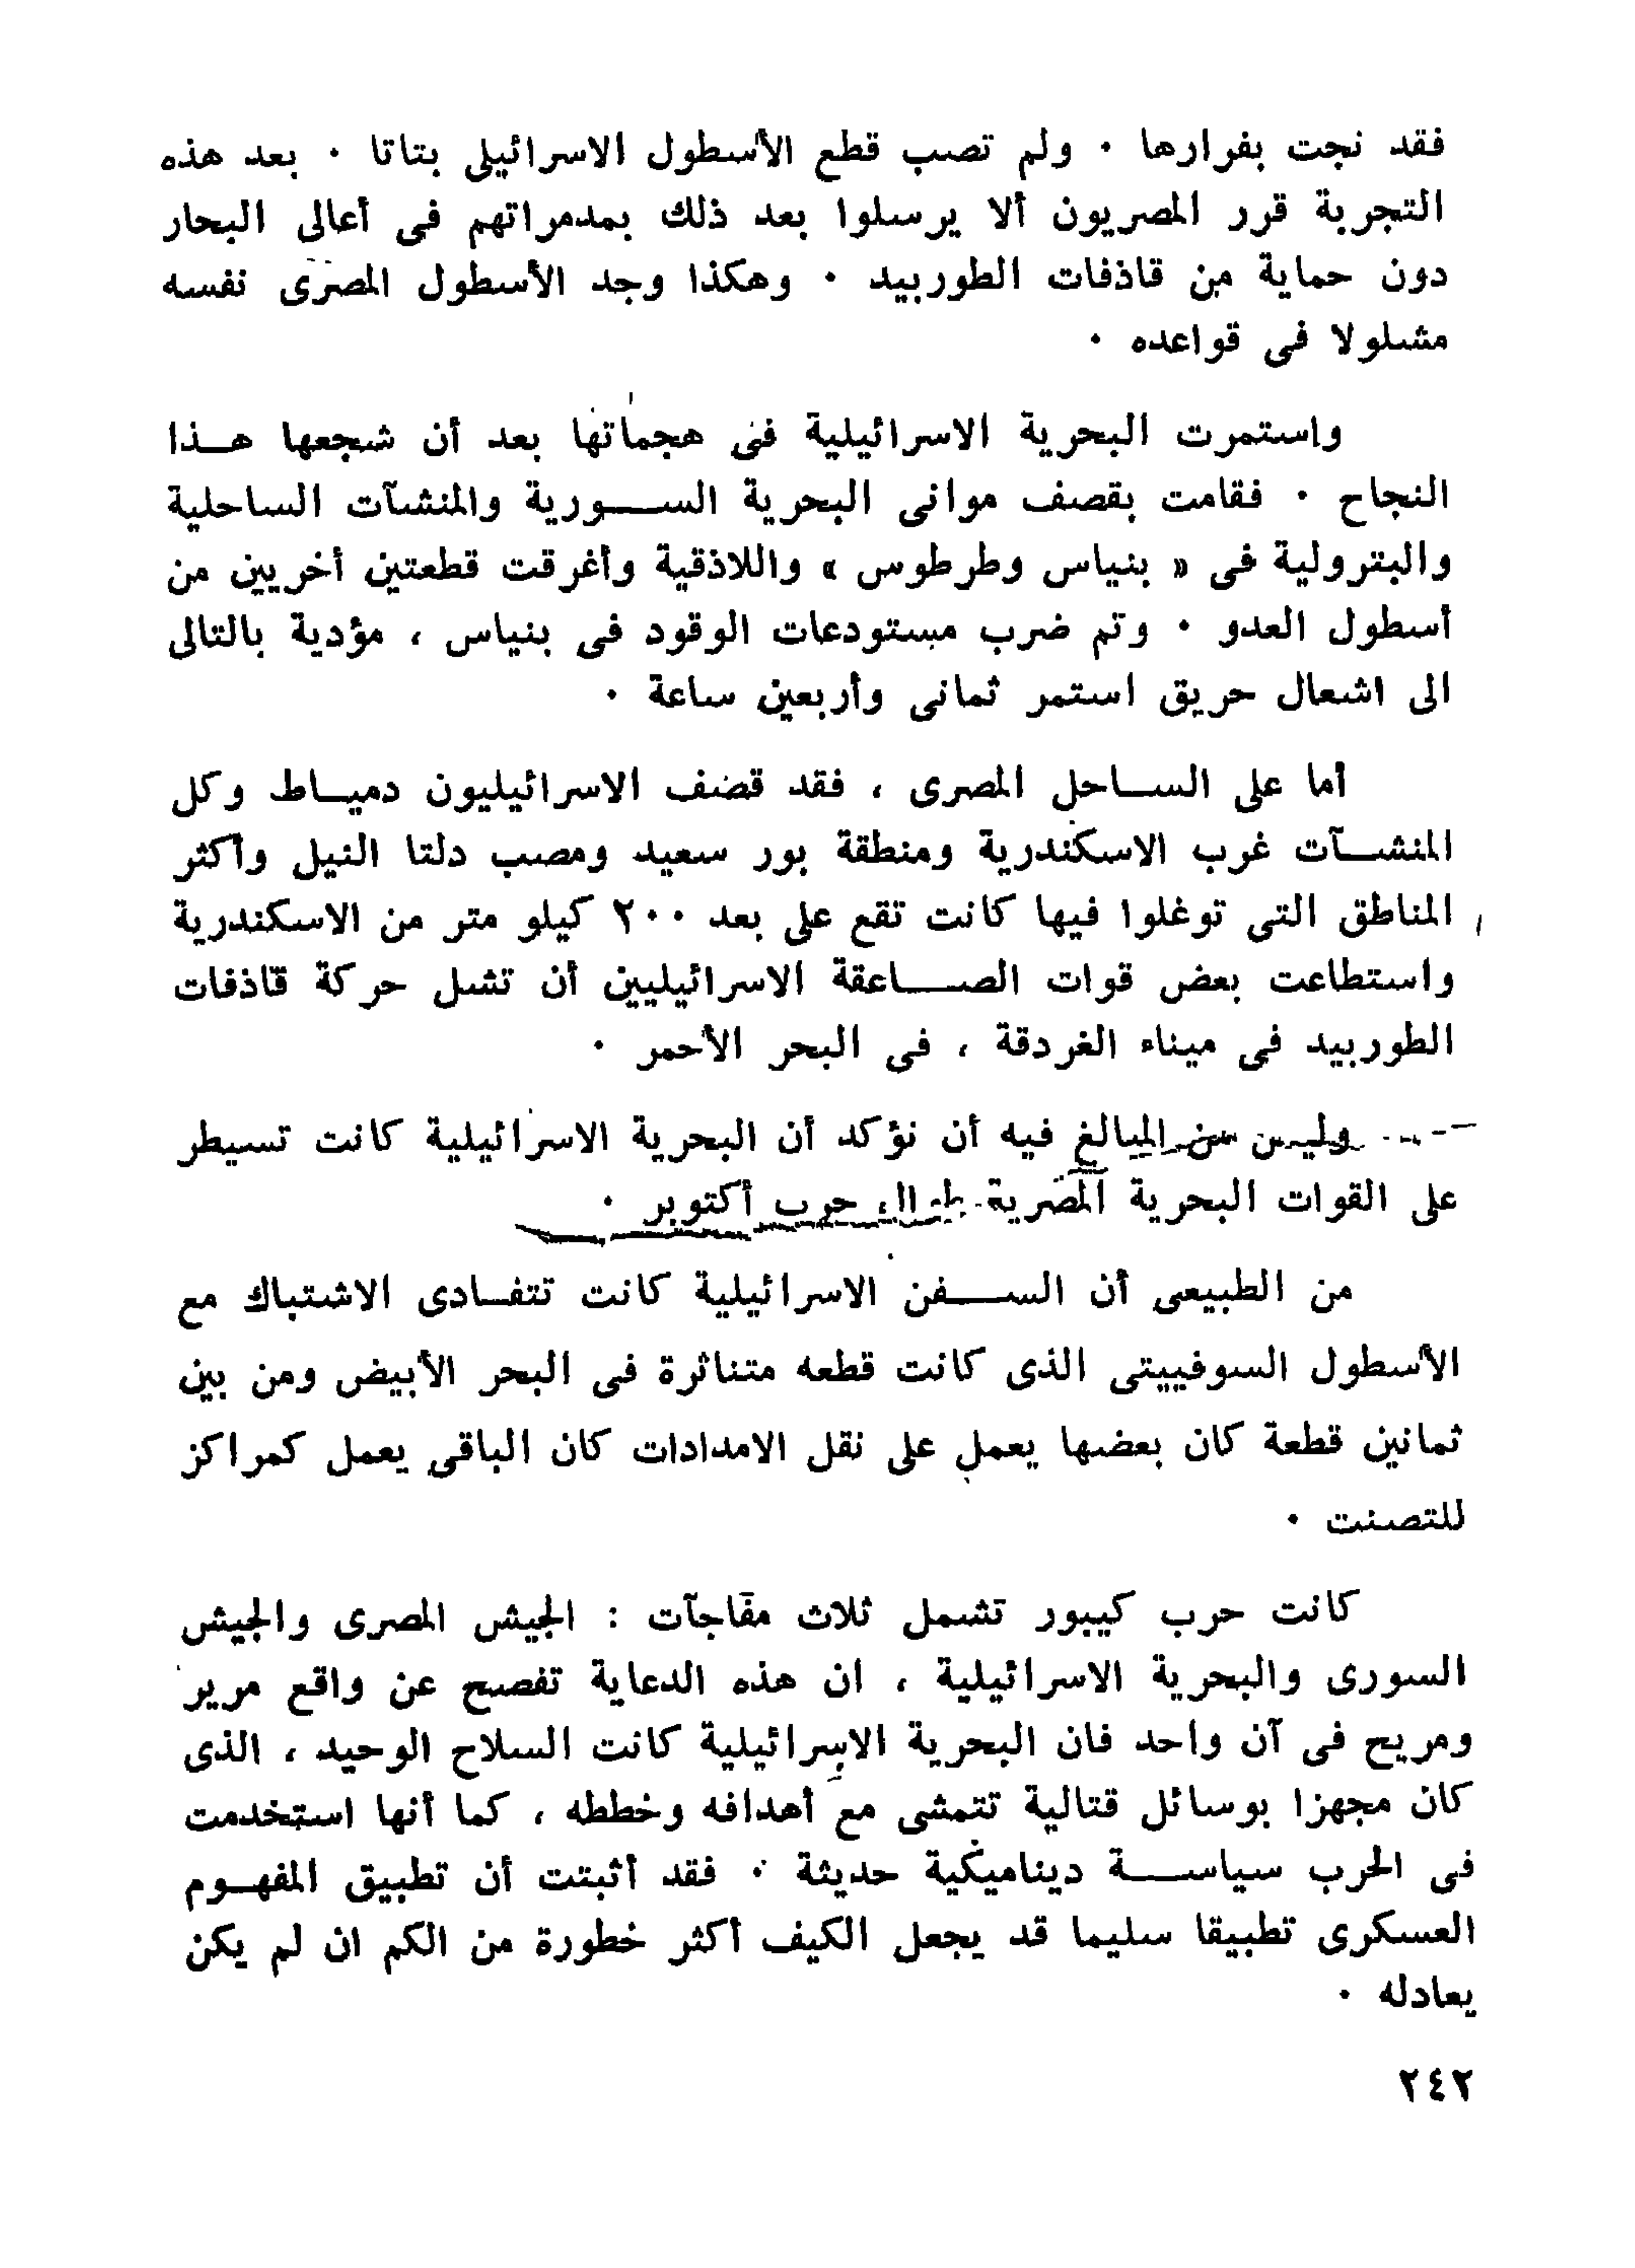 فقد نجت بفرارها ٠ ولم تصب قطع الأسطول الاسرائيلى بتاتا ٠ بعد هذه
التجربة قرر المصريون ألا يرسلوا بعد ذلك بمدمراتهم فى أعالى البحار
دون حماية من قاذفات الطوربيد ٠ وهكذا وجد الأسطول المصرى نفسه
مشلولا فى قواعده ٠
واستمرت البحرية الاسرائيلية فى هجماتها بعد أن شجعها هذا
النجاح ٠ فقامت بقصف موانى البحرية السورية والمنشآت الساحلية
والبترولية فى « بنياس وطرطوس » واللاذقية وأغرقت قطعتين أخريين من
أسطول العدو ٠ وتم ضرب مستودعات الوقود فى بنياس ، مؤدية بالتالى
الى اشعال حريق استمر ثمانى وأربعين ساعة ٠
أما على الساحل المصرى ، فقد قصف الاسرائيليون دمياط وكل
المنشآت غرب الاسكندرية ومنطقة بور سعيد ومصب دلتا النيل وأكثر
المناطق التى توغلوا فيها كانت تقع على بعد ٢٠٠ كيلو متر من الاسكندرية
واستطاعت بعض قوات الصاعقة الاسرائيليين أن تشل حركة قاذفات
الطوربيد فى ميناء الغردقة ، فى البحر الأحمر ٠
وليس من المبالغ فيه أن نؤكد أن البحرية الاسرائيلية كانت تسيطر
على القوات البحرية المصرية طوال حرب أكتوبر ٠
من الطبيعى أن السفن الاسرائيلية كانت تتفادى الاشتباك مع
الأسطول السوفييتى الذى كانت قطعه متناثرة فى البحر الأبيض ومن بين
ثمانين قطعة كان بعضها يعمل على نقل الامدادات كان الباقى يعمل كمراكز
للتصنت ٠
كانت حرب كيبور تشمل ثلاث مفاجآت : الجيش المصرى والجيش
السورى والبحرية الاسرائيلية ، ان هذه الدعاية تفصح عن واقع مرير
ومريح فى آن واحد فان البحرية الاسرائيلية كانت السلاح الوحيد ، الذى
كان مجهزا بوسائل قتالية تتمشى مع أهدافه وخططه ، كما أنها استخدمت
فى الحرب سياسة ديناميكية حديثة ٠ فقد أثبتت أن تطبيق المفهوم
العسكرى تطبيقا سليما قد يجعل الكيف أكثر خطورة من الكم ان لم يكن
يعادله ٠
٢٤٢